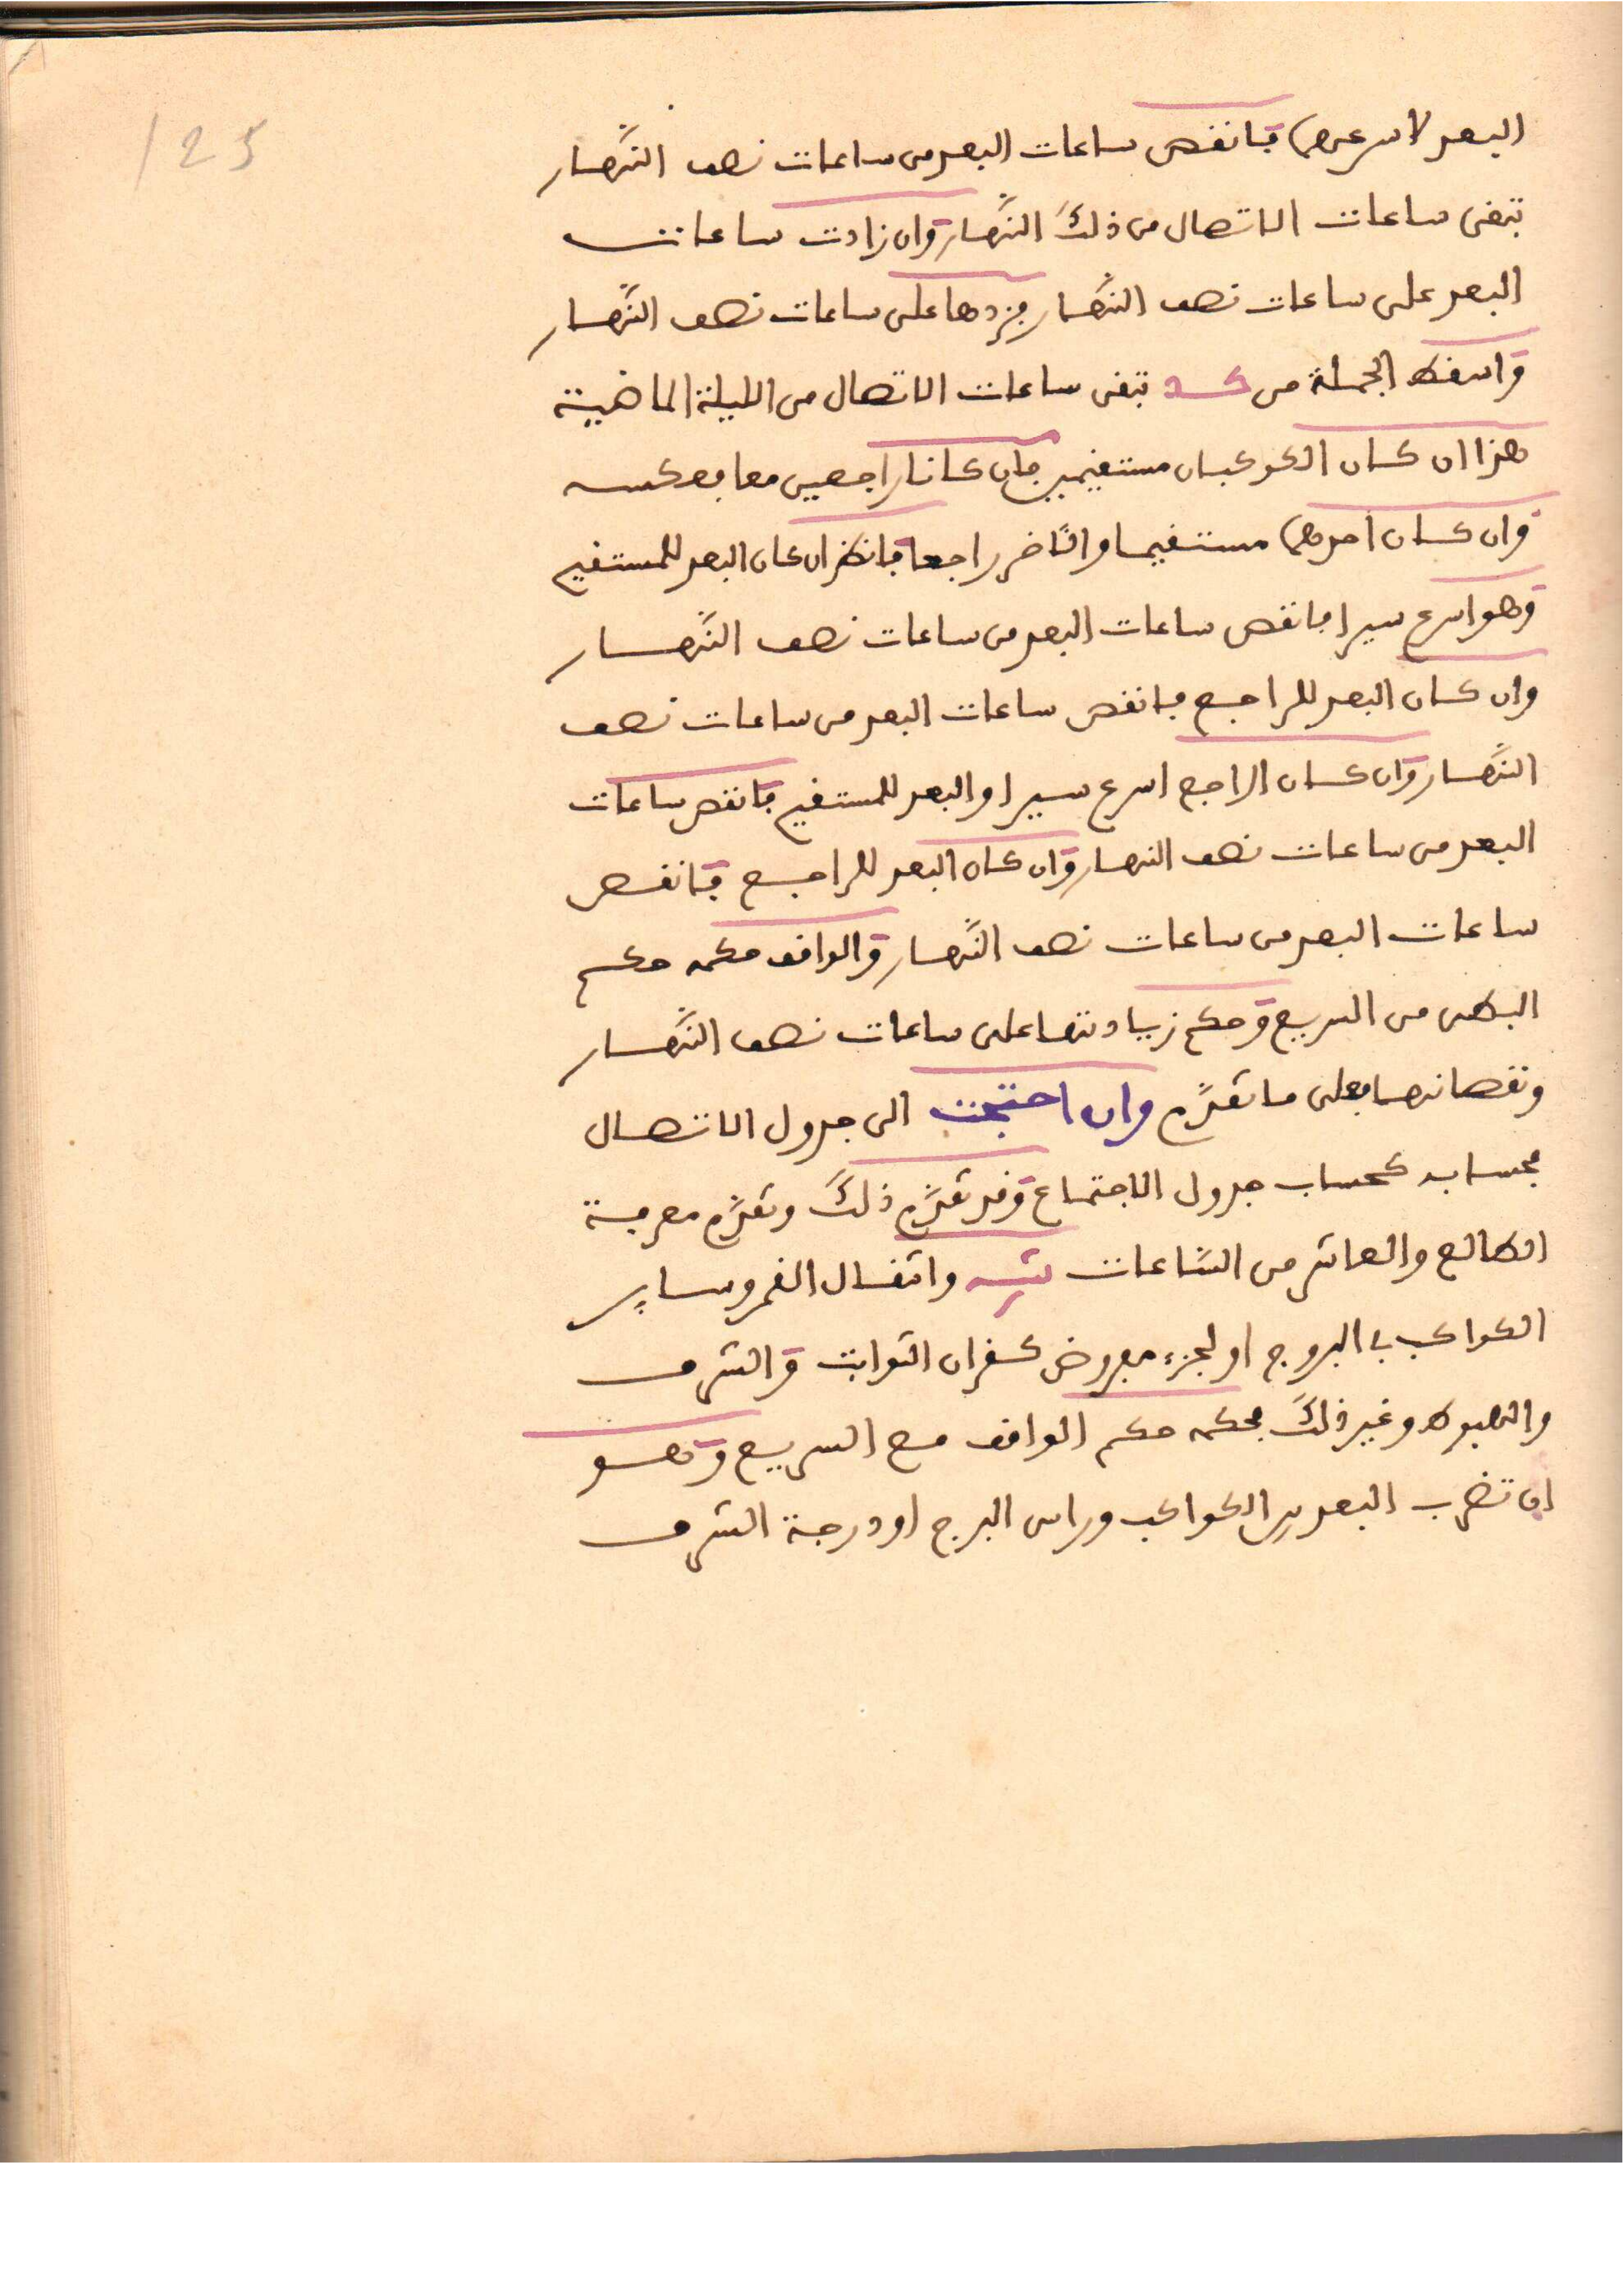 125
البعد لاسرعهما فانقص ساعات البعد من ساعات نصف النّهار
تبقى ساعات الاتصال من ذلكَ النّهار وان زادت ساعات
البعد على ساعات نصف النّهار فزدها على ساعات نصف النّهار
واسقط الجملة من كد تبقى ساعات الاتصال من الليلة الماضية
هذا ان كان الكوكبان مستقيمين فان كانا راجعين معا بعكسه
وان كان احدهما مستقيما والآخر راجعا فانظر ان كان البعد للمستقيم
وهو اسرع سيرا فانقص ساعات البعد من ساعات نصف النّهار
وان كان البعد للراجع فانقص ساعات البعد من ساعات نصف
النّهار وان كان الراجع اسرع سيرا والبعد للمستقيم فانقص ساعات
البعد من ساعات نصف النهار وان كان البعد للراجع فانقص
ساعات البعد من ساعات نصف النّهار والواقف حكمه حكم
البطىء من السريع وحكم زيادتها على ساعات نصف النّهار
ونقصانها فعلى ما تقدّم وان احتجت الى جدول الاتصال
فحسابه كحساب جدول الاجتماع وقد تقدّم ذلكَ وتقدّم معرفة
الطالع والعاشر من السّاعات تنبيه وانتقال القمر وساير
الكواكب في البروج او لجزء مفروض كقران الثوابت والشرف
والهبوط وغير ذلكَ فحكمه حكم الواقف مع السريع وهو
ان تضرب البعد بين الكواكب وراس البرج او درجة الشرف